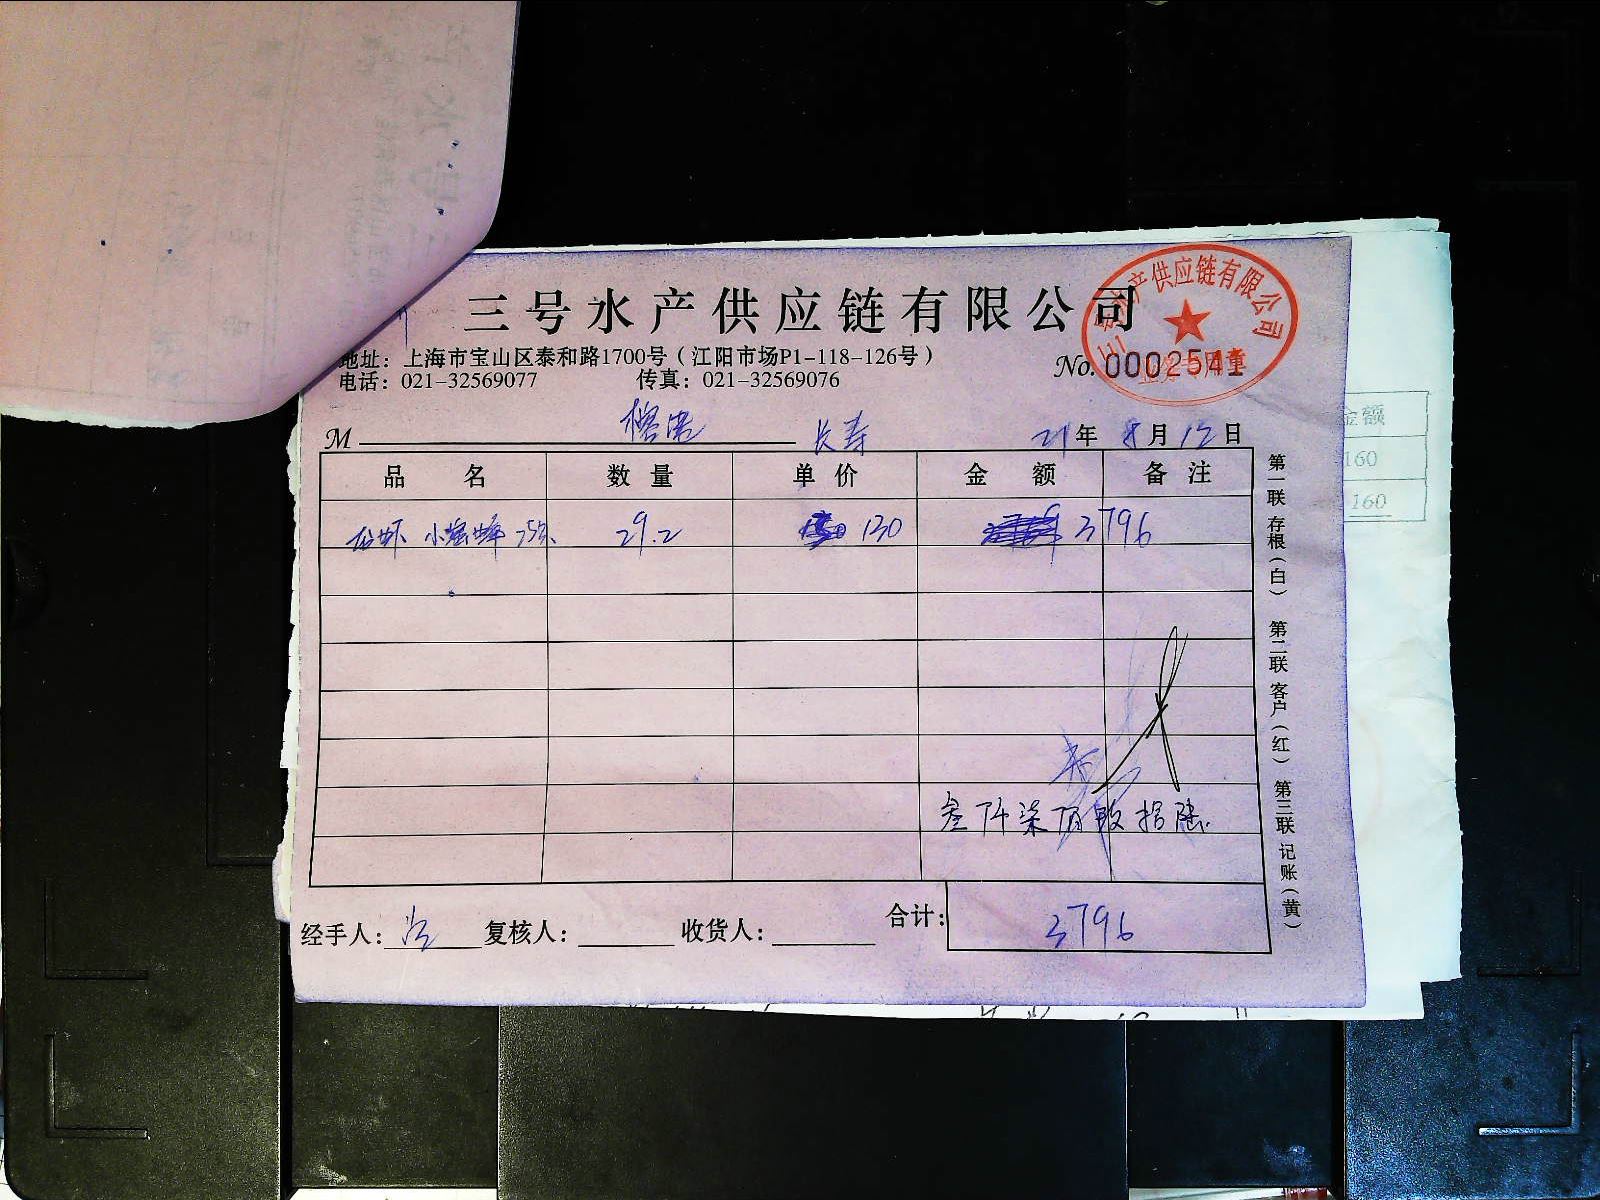 三号水产供应链有限公司
地址：上海市宝山区泰和路1700号（江阳市场P1-118-126号）
电话：021-32569077 传真：021-32569076
No. 0002541
三号水产供应链有限公司
业务专用章
M 长寿 21年8月12日
品名 数量 单价 金额 备注
龙虾 小蜜蜂 29.2 130 3796
叁仟柒佰玖拾陆
经手人： 复核人： 收货人： 合计： 3796
第一联 存根（白） 第二联 客户（红） 第三联 记账（黄）
金额
160
160